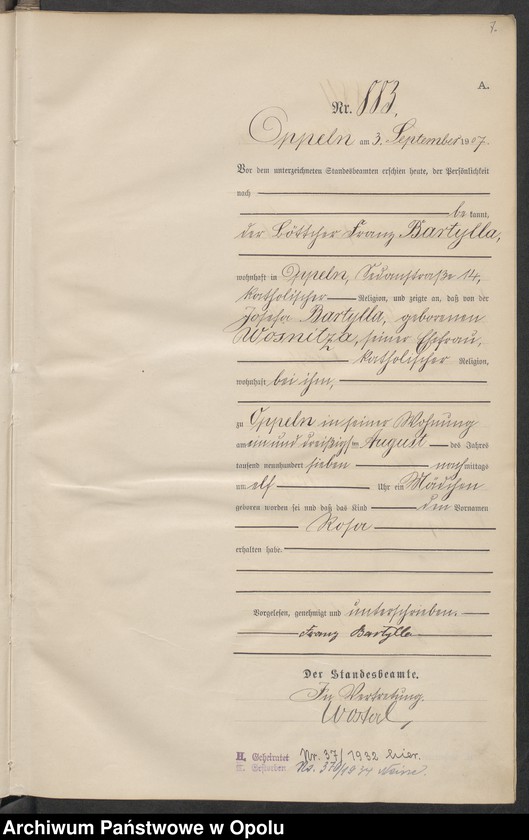 7.
A.
Nr. 883.
Oppeln am 3. September 1907.
Vor dem unterzeichneten Standesbeamten erschien heute, der Persönlichkeit
nach
be kannt,
der Böttcher Franz Bartylla,
wohnhaft in Oppeln, Sedanstraße 14,
katholischer Religion, und zeigte an, daß von der
Josefa Bartylla, geborenen
Wosnitza, seiner Ehefrau,
katholischer Religion,
wohnhaft bei ihm,
zu Oppeln in seiner Wohnung
am ein und dreißigsten August des Jahres
tausend neunhundert sieben nachmittags
um elf Uhr ein Mädchen
geboren worden sei und daß das Kind den Vornamen
Rosa
erhalten habe.
Vorgelesen, genehmigt und unterschrieben.
Franz Bartylla
Der Standesbeamte.
In Vertretung.
Wostal
II. Geheiratet Nr. 37/1932 hier.
No. 370/1934
Archiwum Państwowe w Opolu